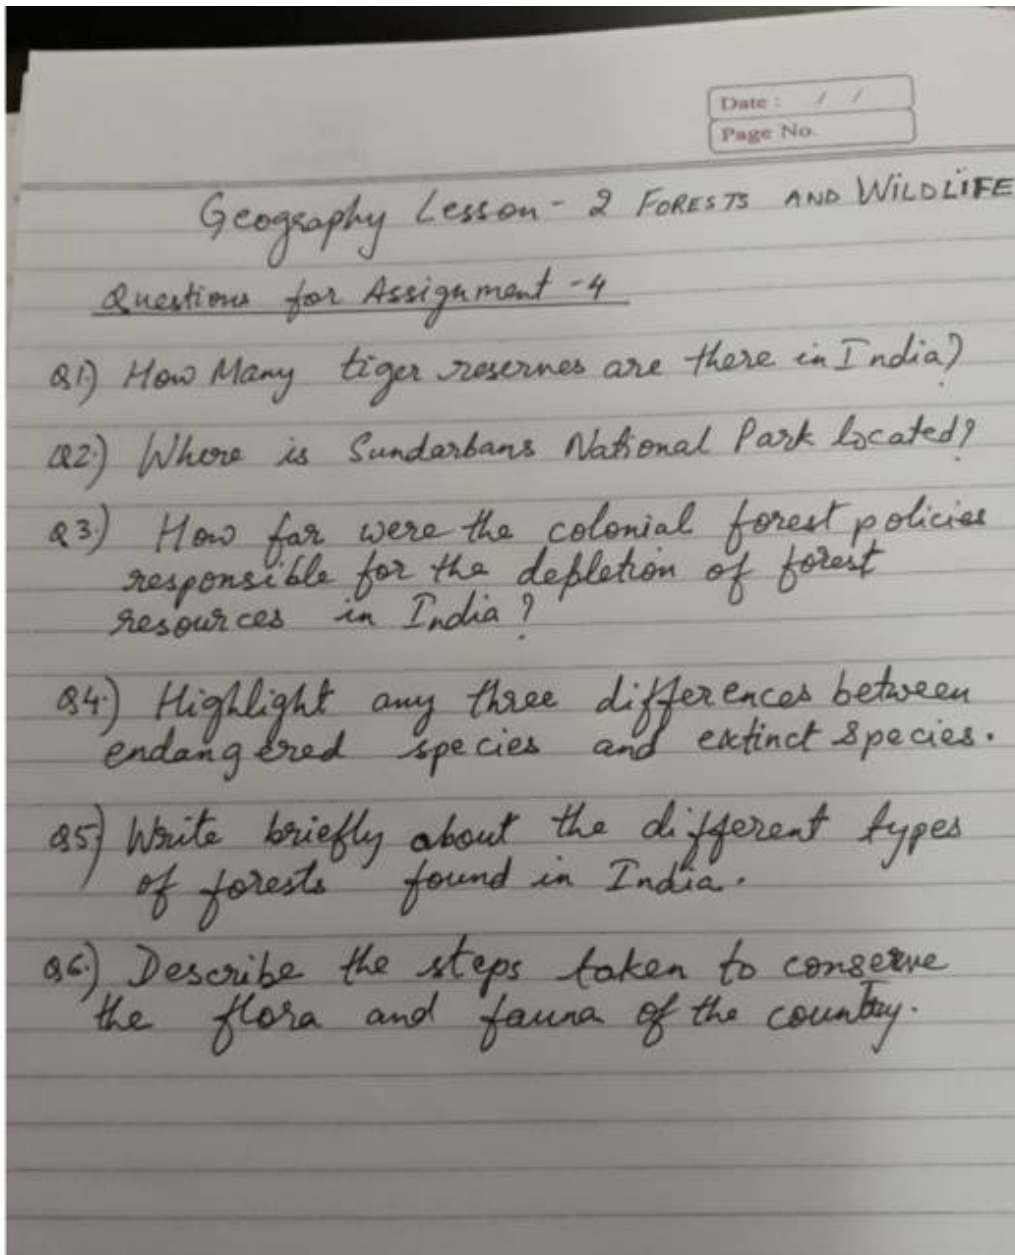 Date : / /
Page No.
Geography Lesson - 2 FORESTS AND WILDLIFE
Questions for Assignment - 4
Q1) How Many tiger reserves are there in India?
Q2.) Where is Sundarbans National Park located?
Q3.) How far were the colonial forest policies
responsible for the depletion of forest
resources in India?
Q4.) Highlight any three differences between
endangered species and extinct species.
Q5) Write briefly about the different types
of forests found in India.
Q6.) Describe the steps taken to conserve
the flora and fauna of the country.